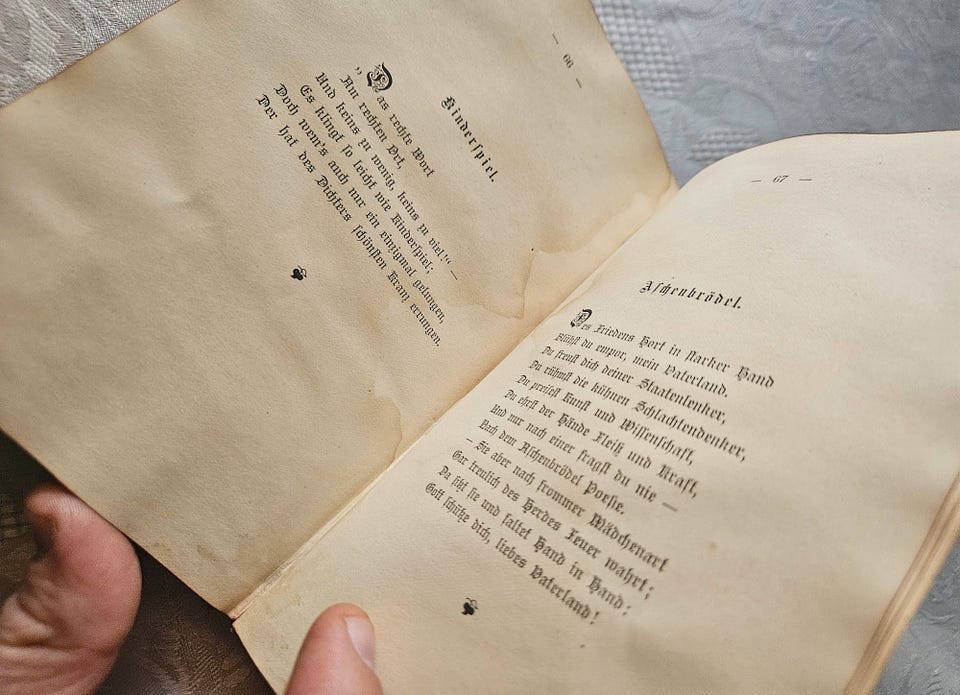 — 66 —
Kinderspiel.
„Das rechte Wort
Am rechten Ort,
Und keins zu wenig, keins zu viel!“ —
Es klingt so leicht wie Kinderspiel;
Doch wem's auch nur ein einzigmal gelungen,
Der hat des Dichters schönsten Kranz errungen.
— 67 —
Aschenbrödel.
Des Friedens Hort in starker Hand
Blühst du empor, mein Vaterland.
Du freust dich deiner Staatenlenker,
Du rühmst die kühnen Schlachtendenker,
Du preisest Kunst und Wissenschaft,
Du ehrst der Hände Fleiß und Kraft,
Und nur nach einer fragst du nie —
Nach dem Aschenbrödel Poesie.
— Sie aber nach frommer Mädchenart
Gar treulich des Herdes Feuer wahrt;
Da sitzt sie und faltet Hand in Hand:
Gott schütze dich, liebes Vaterland!